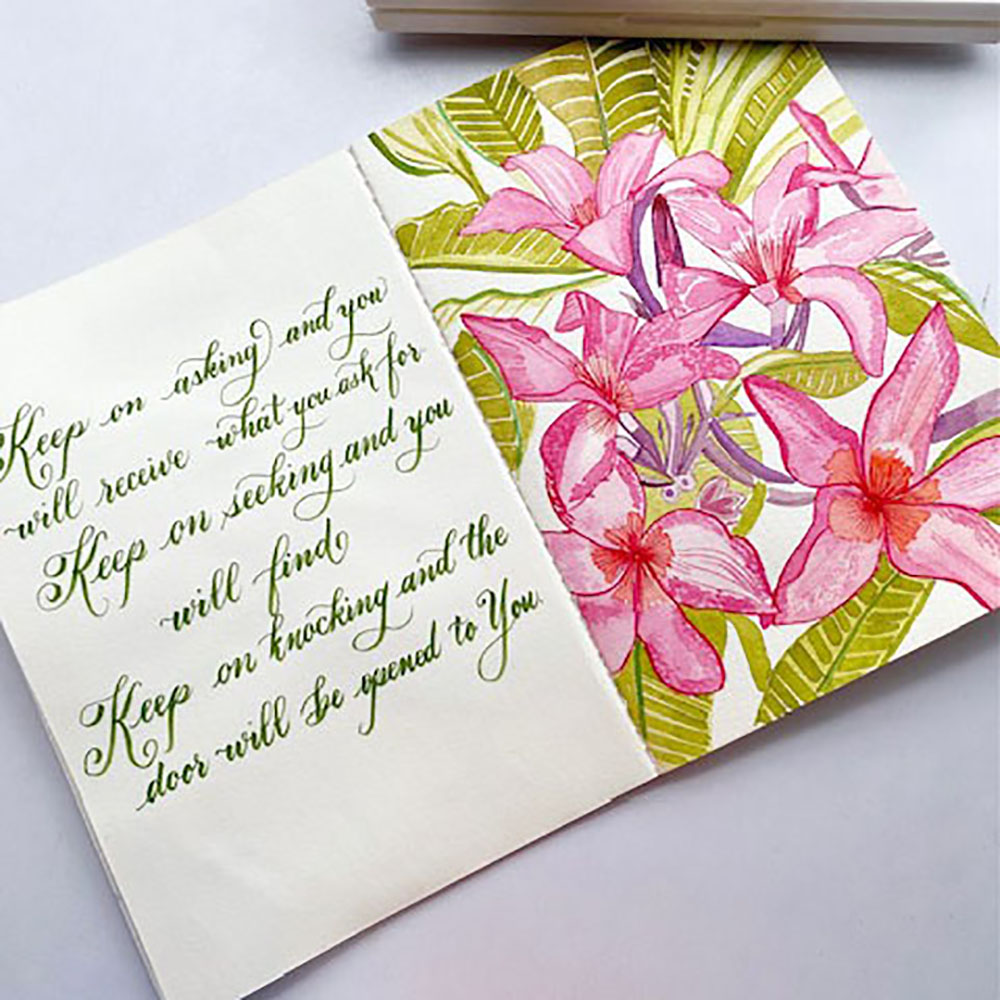 Keep on asking and you
will receive what you ask for
Keep on seeking and you
will find
Keep on knocking and the
door will be opened to You.